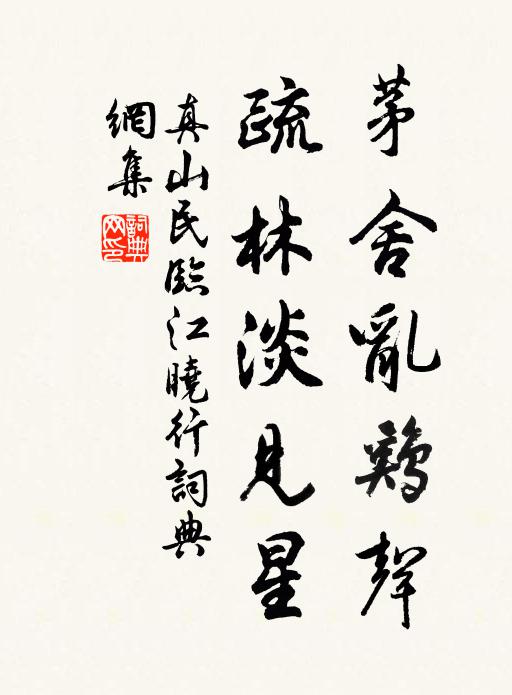 茅舍亂鷄聲
疏林淡見星
真山民臨江曉行詞典
網集
詞典網印